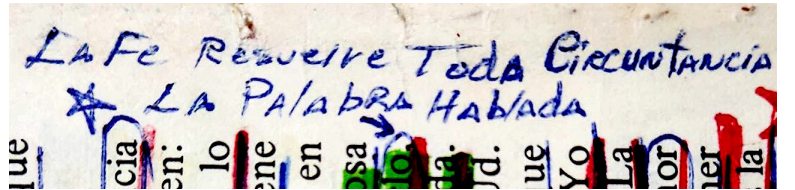 La Fe Resuelve Toda Circuntancia
* La Palabra Hablada
que
cia
en:
lo
ene
en
osa
do,
da.
Ud.
que
Yo
La
nor
ler
e la